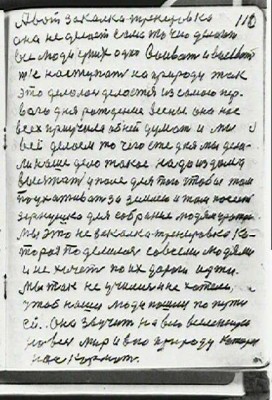 А вой закалка-тренировка 110
она не делает с ними то что делают
все люди у них одно Воевать и воевать
те наступат на природу так
это делолос делается из самого пер-
вого дня рождения весны она нас
всех приучила об ней думат и мы
ей делаем то чего сте дня мы дела-
ли наше дело такое надо из дома
выезжат у поле для того чтобы там
поухаживат за землей и там посеят
зернушко для собрания людям урожая
мы это не закалка-тренировка ко-
торая поделился со всем людями
и не хочет по их дороги идти.
мы так не училися и не хотели,
чтоб наши люди пошли по пути
ей. Она звучит на всю вселенную
на вес мир и всю природу которая
нас кормит.